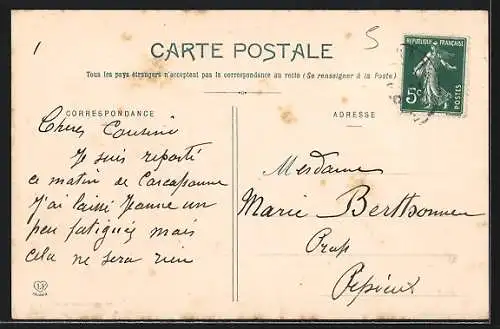 1
5
CARTE POSTALE
Tous les pays étrangers n'acceptent pas la correspondance au recto (Se renseigner à la Poste)
REPUBLIQUE FRANÇAISE
5c
POSTES
CORRESPONDANCE
ADRESSE
Cheres Cousine
Je suis reparti
ce matin de Carcassonne
J'ai laissé Jeanne un
peu fatiguée mais
cela ne sera rien
Mesdames
Marie
Pepieux